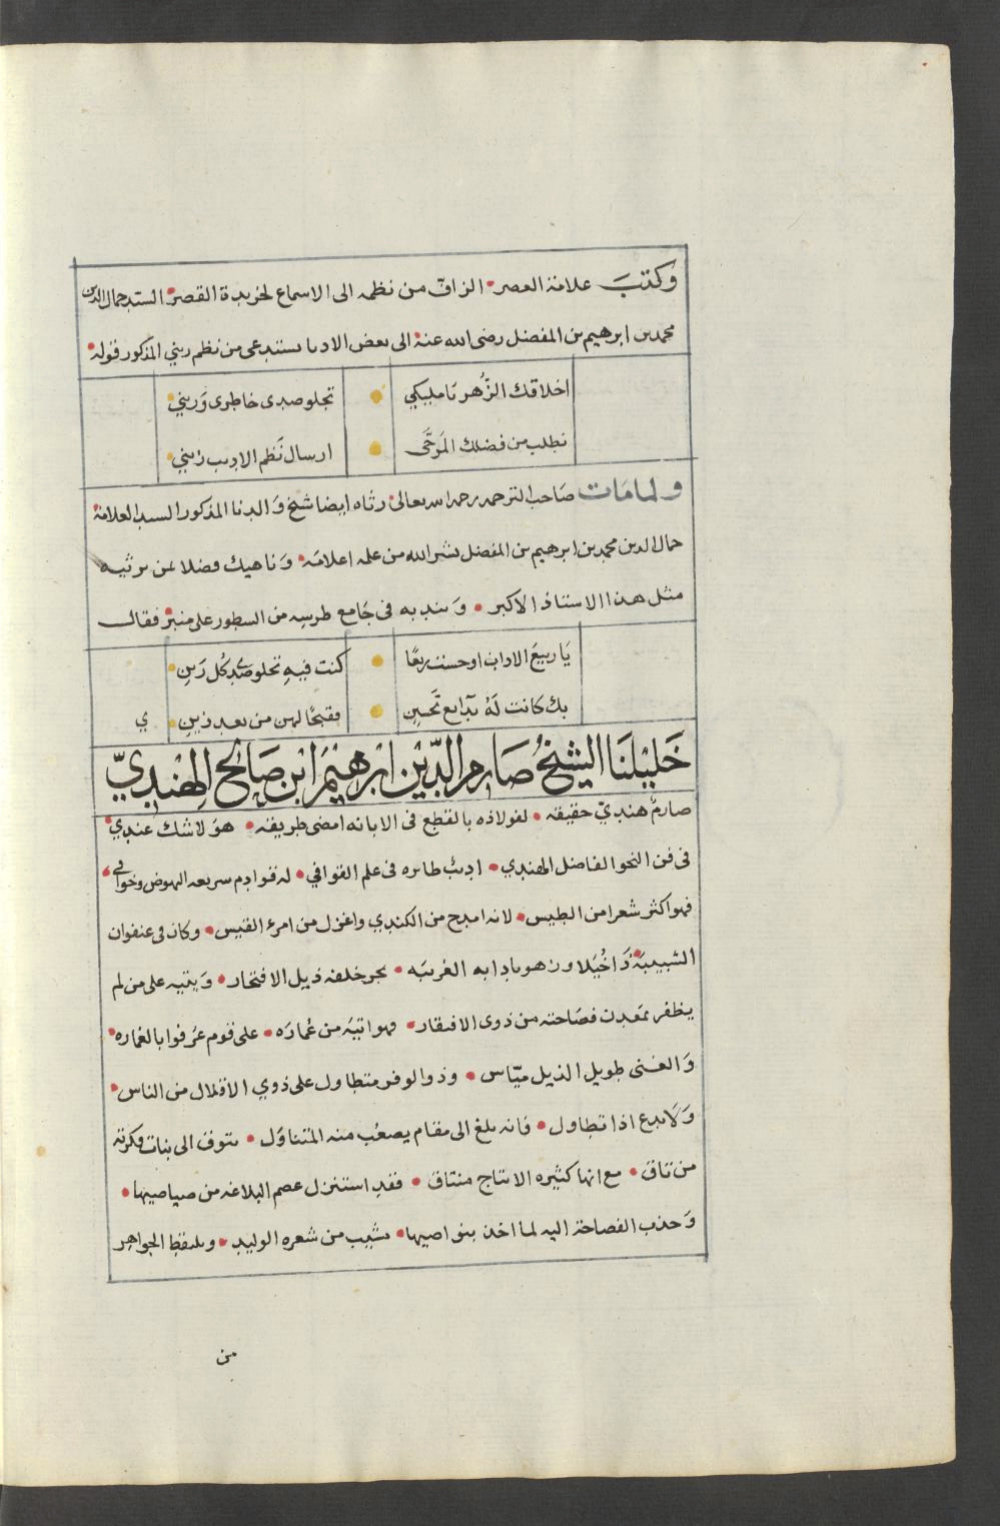 وكتب علامة العصر • الزاف من نظمه الى الاسماع لخريدة القصر • السيد جمال الدين
محمد بن ابرهيم بن المفضل رضى الله عنه • الى بعض الادبا يستدعى من نظم ريني المذكور قوله •
اخلاقك الزُّهر يَا مليكي • تجلو صدى خاطرى وَريني •
نطلب من فضلك المَرجَّى • ارسال نَظم الاديب رَيني •
ولما مَات صَاحب الترجمه رحمه الله تعالى • رثاه ايضا شيخ وَالدنا المذكور السيد العلامة •
جمال الدين محمد بن ابرهيم بن المفضل نشر الله من علمه اعلامَه • وَناهيك فضلا عمن يرثيه
مثل هذا الاستاذ الاكبر • وَيندبه فى جَامع طرسِه من السطور على منبر • فقال
يَا ربيعَ الاداب اوحشت ربعًا • كنت فيهِ تجلو صدى كُل رَين •
بك كَانت لَهُ بَدَايع تحَسِين • فقبحًا لهن من بعد زين • ي
خَلِيْلنَا الشيخُ صَارم الدّيْن ابْرهيْمُ ابْن صَالح الهِنْدِيّ
صارمٌ هنديّ حقيقه • لفولاذه بالقطع فى الابانه امضى طريقه • هوَ لا شك عندي •
فى فن النحو الفاضل الهندي • اديبٌ طايره فى علم القوافي • له قوادم سريعه النهوض وخوافي •
فهو اكثر شعرا من الطيس • لانه امدح من الكندي واغزل من امرء القيس • وكان فى عنفوان
الشبيبَة • ذَا خُيَلا وزهو بادابه الغريبَه • يجر خلفه ذيل الافتخار • وَيتيه على من لم
يظفر بمَعدن فصَاحته من ذوى الافتقار • فهو اتيَه من عُمارَه • على قوم عرَفوا بالغمَاره •
وَالغنى طويل الذيل ميّاس • وذو الوفر متطاول على ذوي الاقلال من الناس •
وَلا بدع اذا تطاول • فانه بلغ الى مقام يصعُب منه المتناوَل • يتوق الى بنات فكرته
من تاق • مع انها كثيره الانتاج منتاق • فقد استنزل عصم البلاغه من صياصيها •
وَجذب الفصاحة اليه لما اخذ بنواصيها • يشيب من شعره الوليد • ويلتقط الجواهر
من